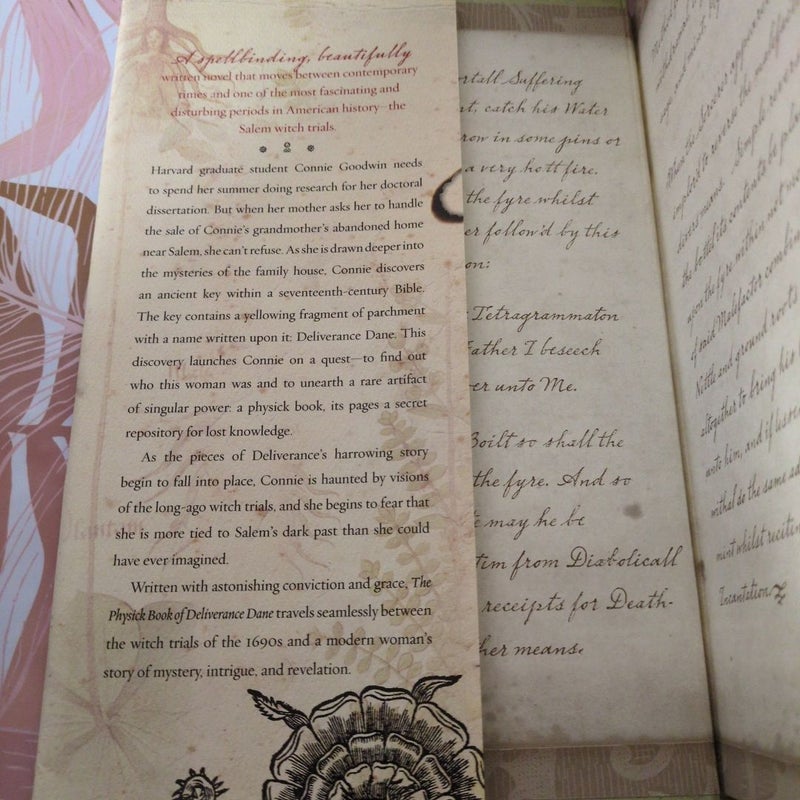 A spellbinding, beautifully
written novel that moves between contemporary
times and one of the most fascinating and
disturbing periods in American history—the
Salem witch trials.
Harvard graduate student Connie Goodwin needs
to spend her summer doing research for her doctoral
dissertation. But when her mother asks her to handle
the sale of Connie's grandmother's abandoned home
near Salem, she can't refuse. As she is drawn deeper into
the mysteries of the family house, Connie discovers
an ancient key within a seventeenth-century Bible.
The key contains a yellowing fragment of parchment
with a name written upon it: Deliverance Dane. This
discovery launches Connie on a quest—to find out
who this woman was and to unearth a rare artifact
of singular power: a physick book, its pages a secret
repository for lost knowledge.
As the pieces of Deliverance's harrowing story
begin to fall into place, Connie is haunted by visions
of the long-ago witch trials, and she begins to fear that
she is more tied to Salem's dark past than she could
have ever imagined.
Written with astonishing conviction and grace, The
Physick Book of Deliverance Dane travels seamlessly between
the witch trials of the 1690s and a modern woman's
story of mystery, intrigue, and revelation.
rtall Suffering
t, catch his Water
row in some pins or
a very hott fire.
the fyre whilst
er follow'd by this
on:
Tetragrammaton
Father I beseech
er unto Me.
Boilt so shall the
the fyre. And so
may he be
tim from Diabolicall
receipts for Death-
her means.
the bottel its contents to be
upon the fyre within
of said Malefactor combin
Nettle and ground roots
altogether to bring his
unto him, and if
withal do the same
ment whilst recitin
Incantation